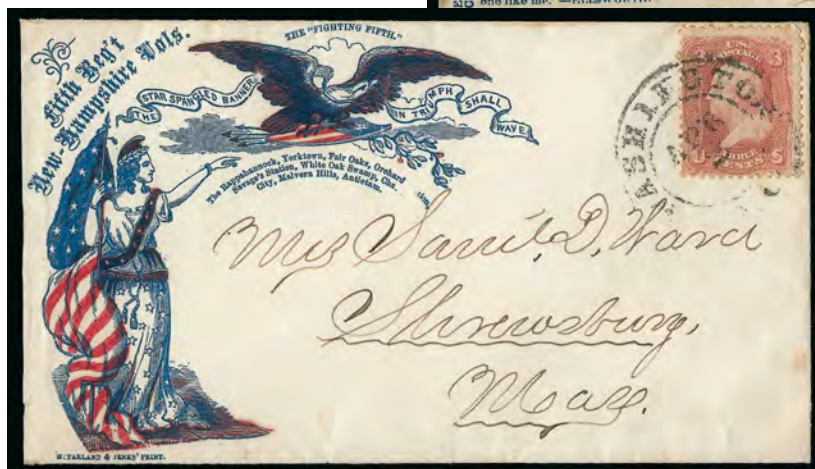 one like me. —ELLSWORTH.
Fifth Reg't
New-Hampshire Vols.
THE "FIGHTING FIFTH."
THE STAR SPANGLED BANNER
IN TRIUMPH SHALL WAVE
The Rappahannock, Yorktown, Fair Oaks, Orchard
Savage's Station, White Oak Swamp, Cha
City, Malvern Hills, Antietam.
tion,
U.S.
POSTAGE
3 3
U S
THREE
CENTS
ASHINGTON
APR
Saml. D. Ward
Shrewsbury,
Mass.
M'FARLAND & JENKS' PRINT.